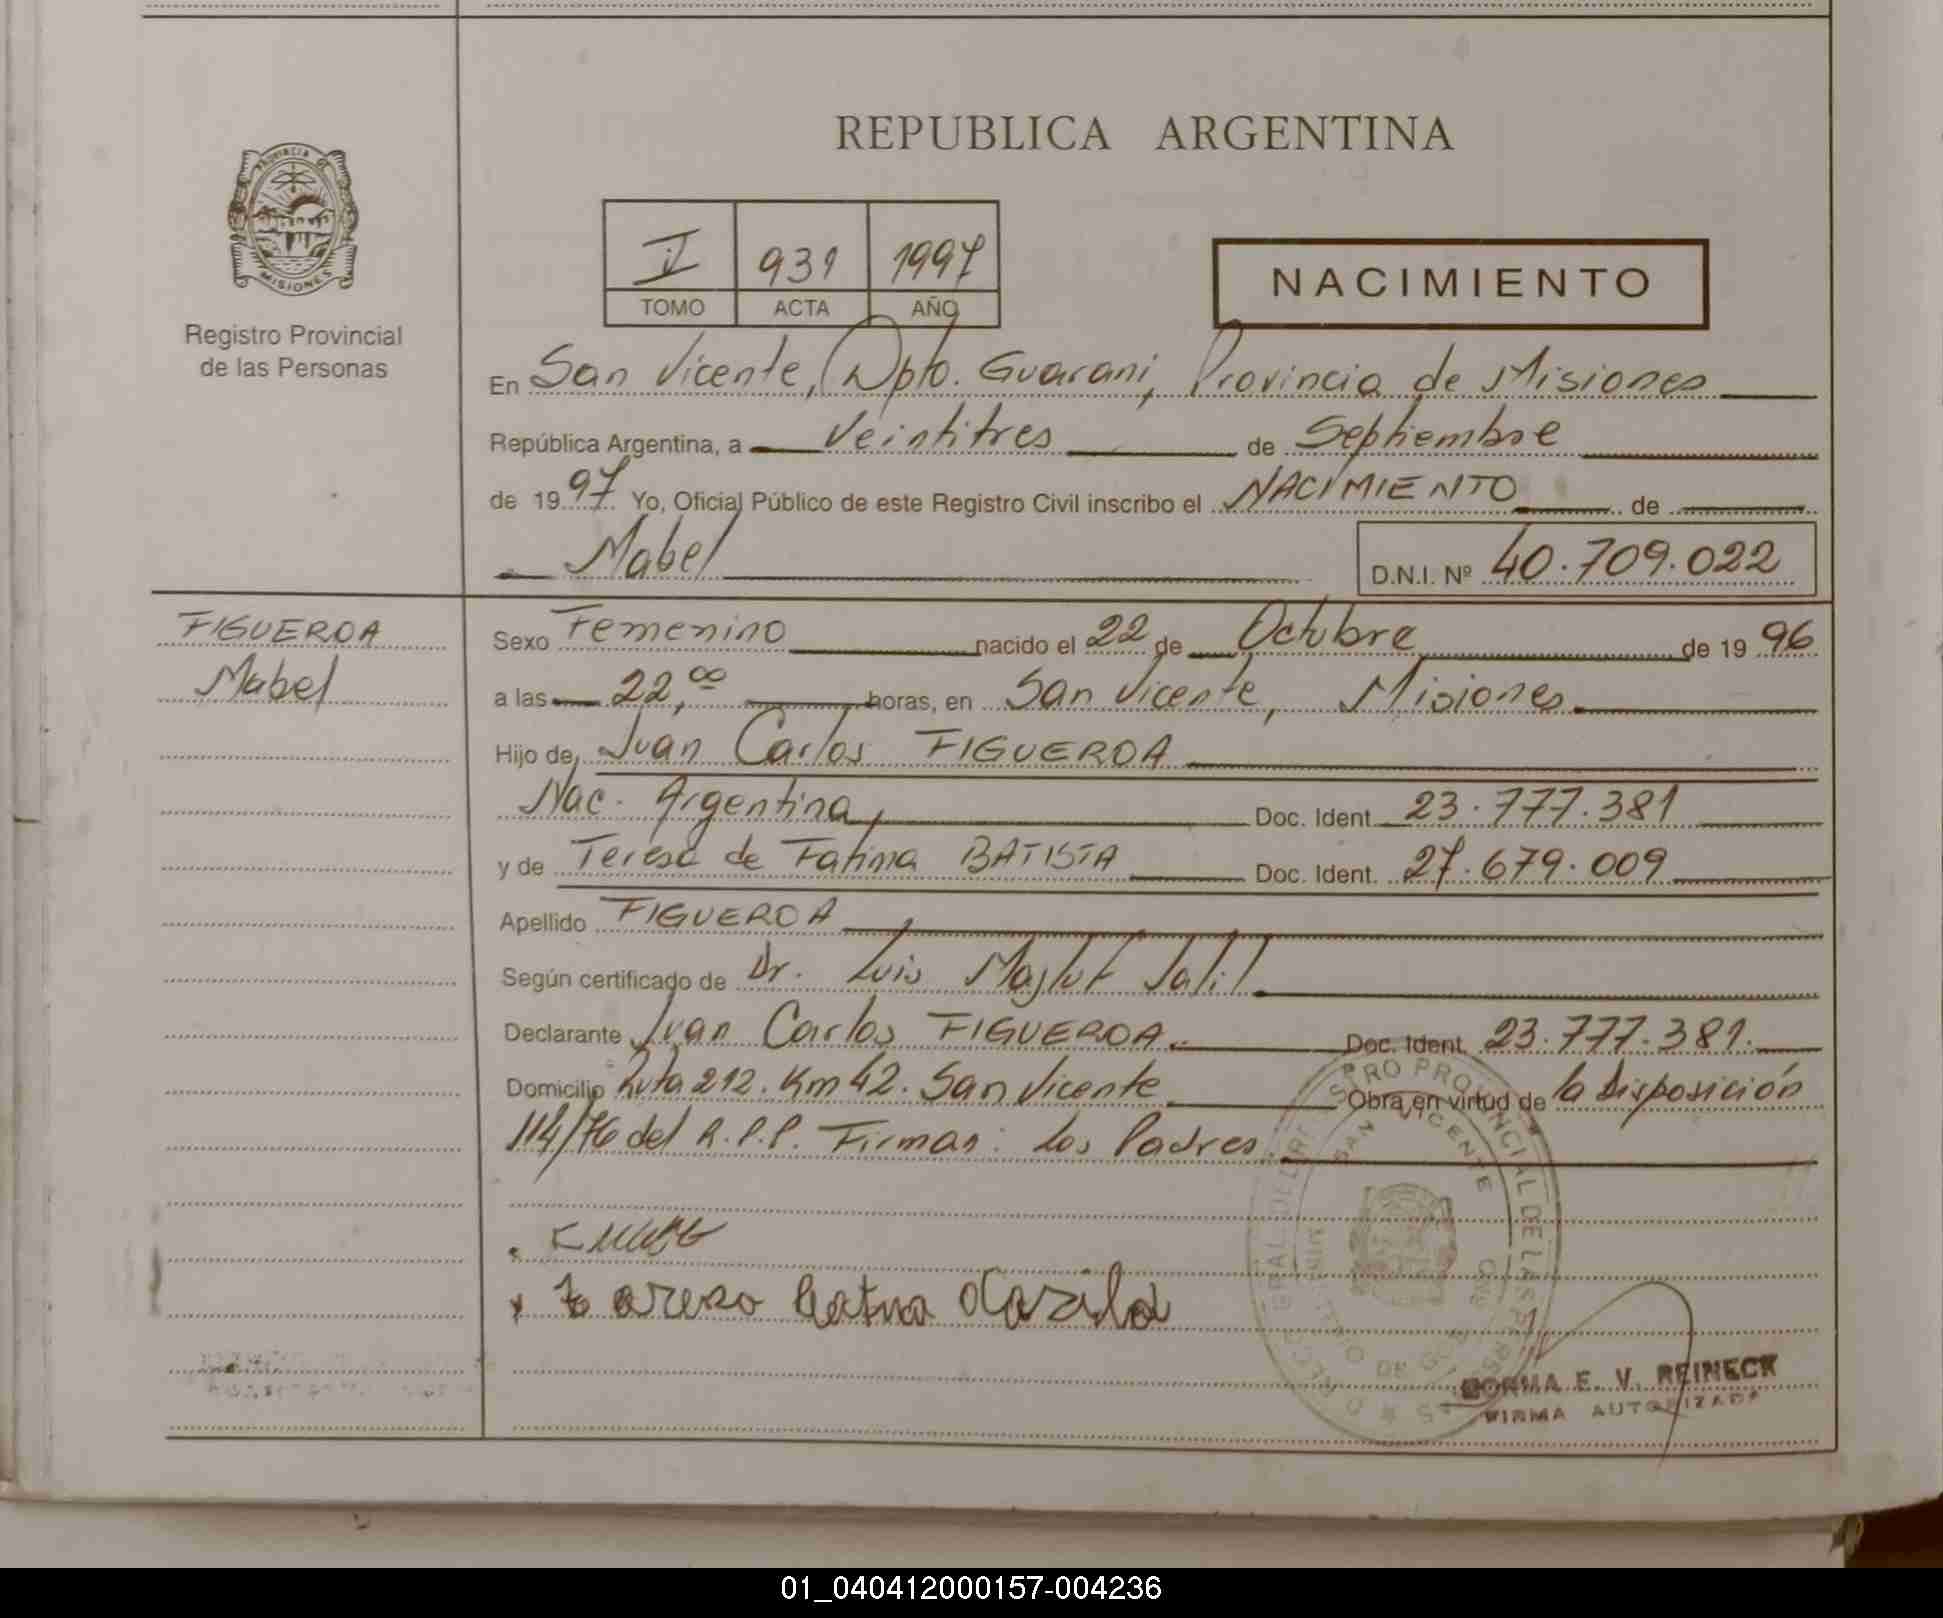 REPUBLICA ARGENTINA
PROVINCIA DE
MISIONES
Registro Provincial
de las Personas
V 931 1997
TOMO ACTA AÑO
NACIMIENTO
En San Vicente, Dpto. Guarani, Provincia de Misiones
República Argentina, a Veintitres de Septiembre
de 1997 Yo, Oficial Público de este Registro Civil inscribo el NACIMIENTO de
Mabel D.N.I. Nº 40.709.022
FIGUEROA
Mabel
Sexo Femenino nacido el 22 de Octubre de 1996
a las 22,00 horas, en San Vicente, Misiones
Hijo de, Juan Carlos FIGUEROA
Nac. Argentina, Doc. Ident. 23.777.381
y de Teresa de Fatima BATISTA Doc. Ident. 27.679.009
Apellido FIGUEROA
Según certificado de Dr. Luis Jalil
Declarante Juan Carlos FIGUEROA.. Doc. Ident. 23.777.381.
Domicilio Ruta 212. Km 42. San Vicente Obra en virtud de la disposición
114/76 del R.P.P. Firman: Los Padres.
SAN VICENTE
NORMA E. V. REINECK
FIRMA AUTORIZADA
01_040412000157-004236